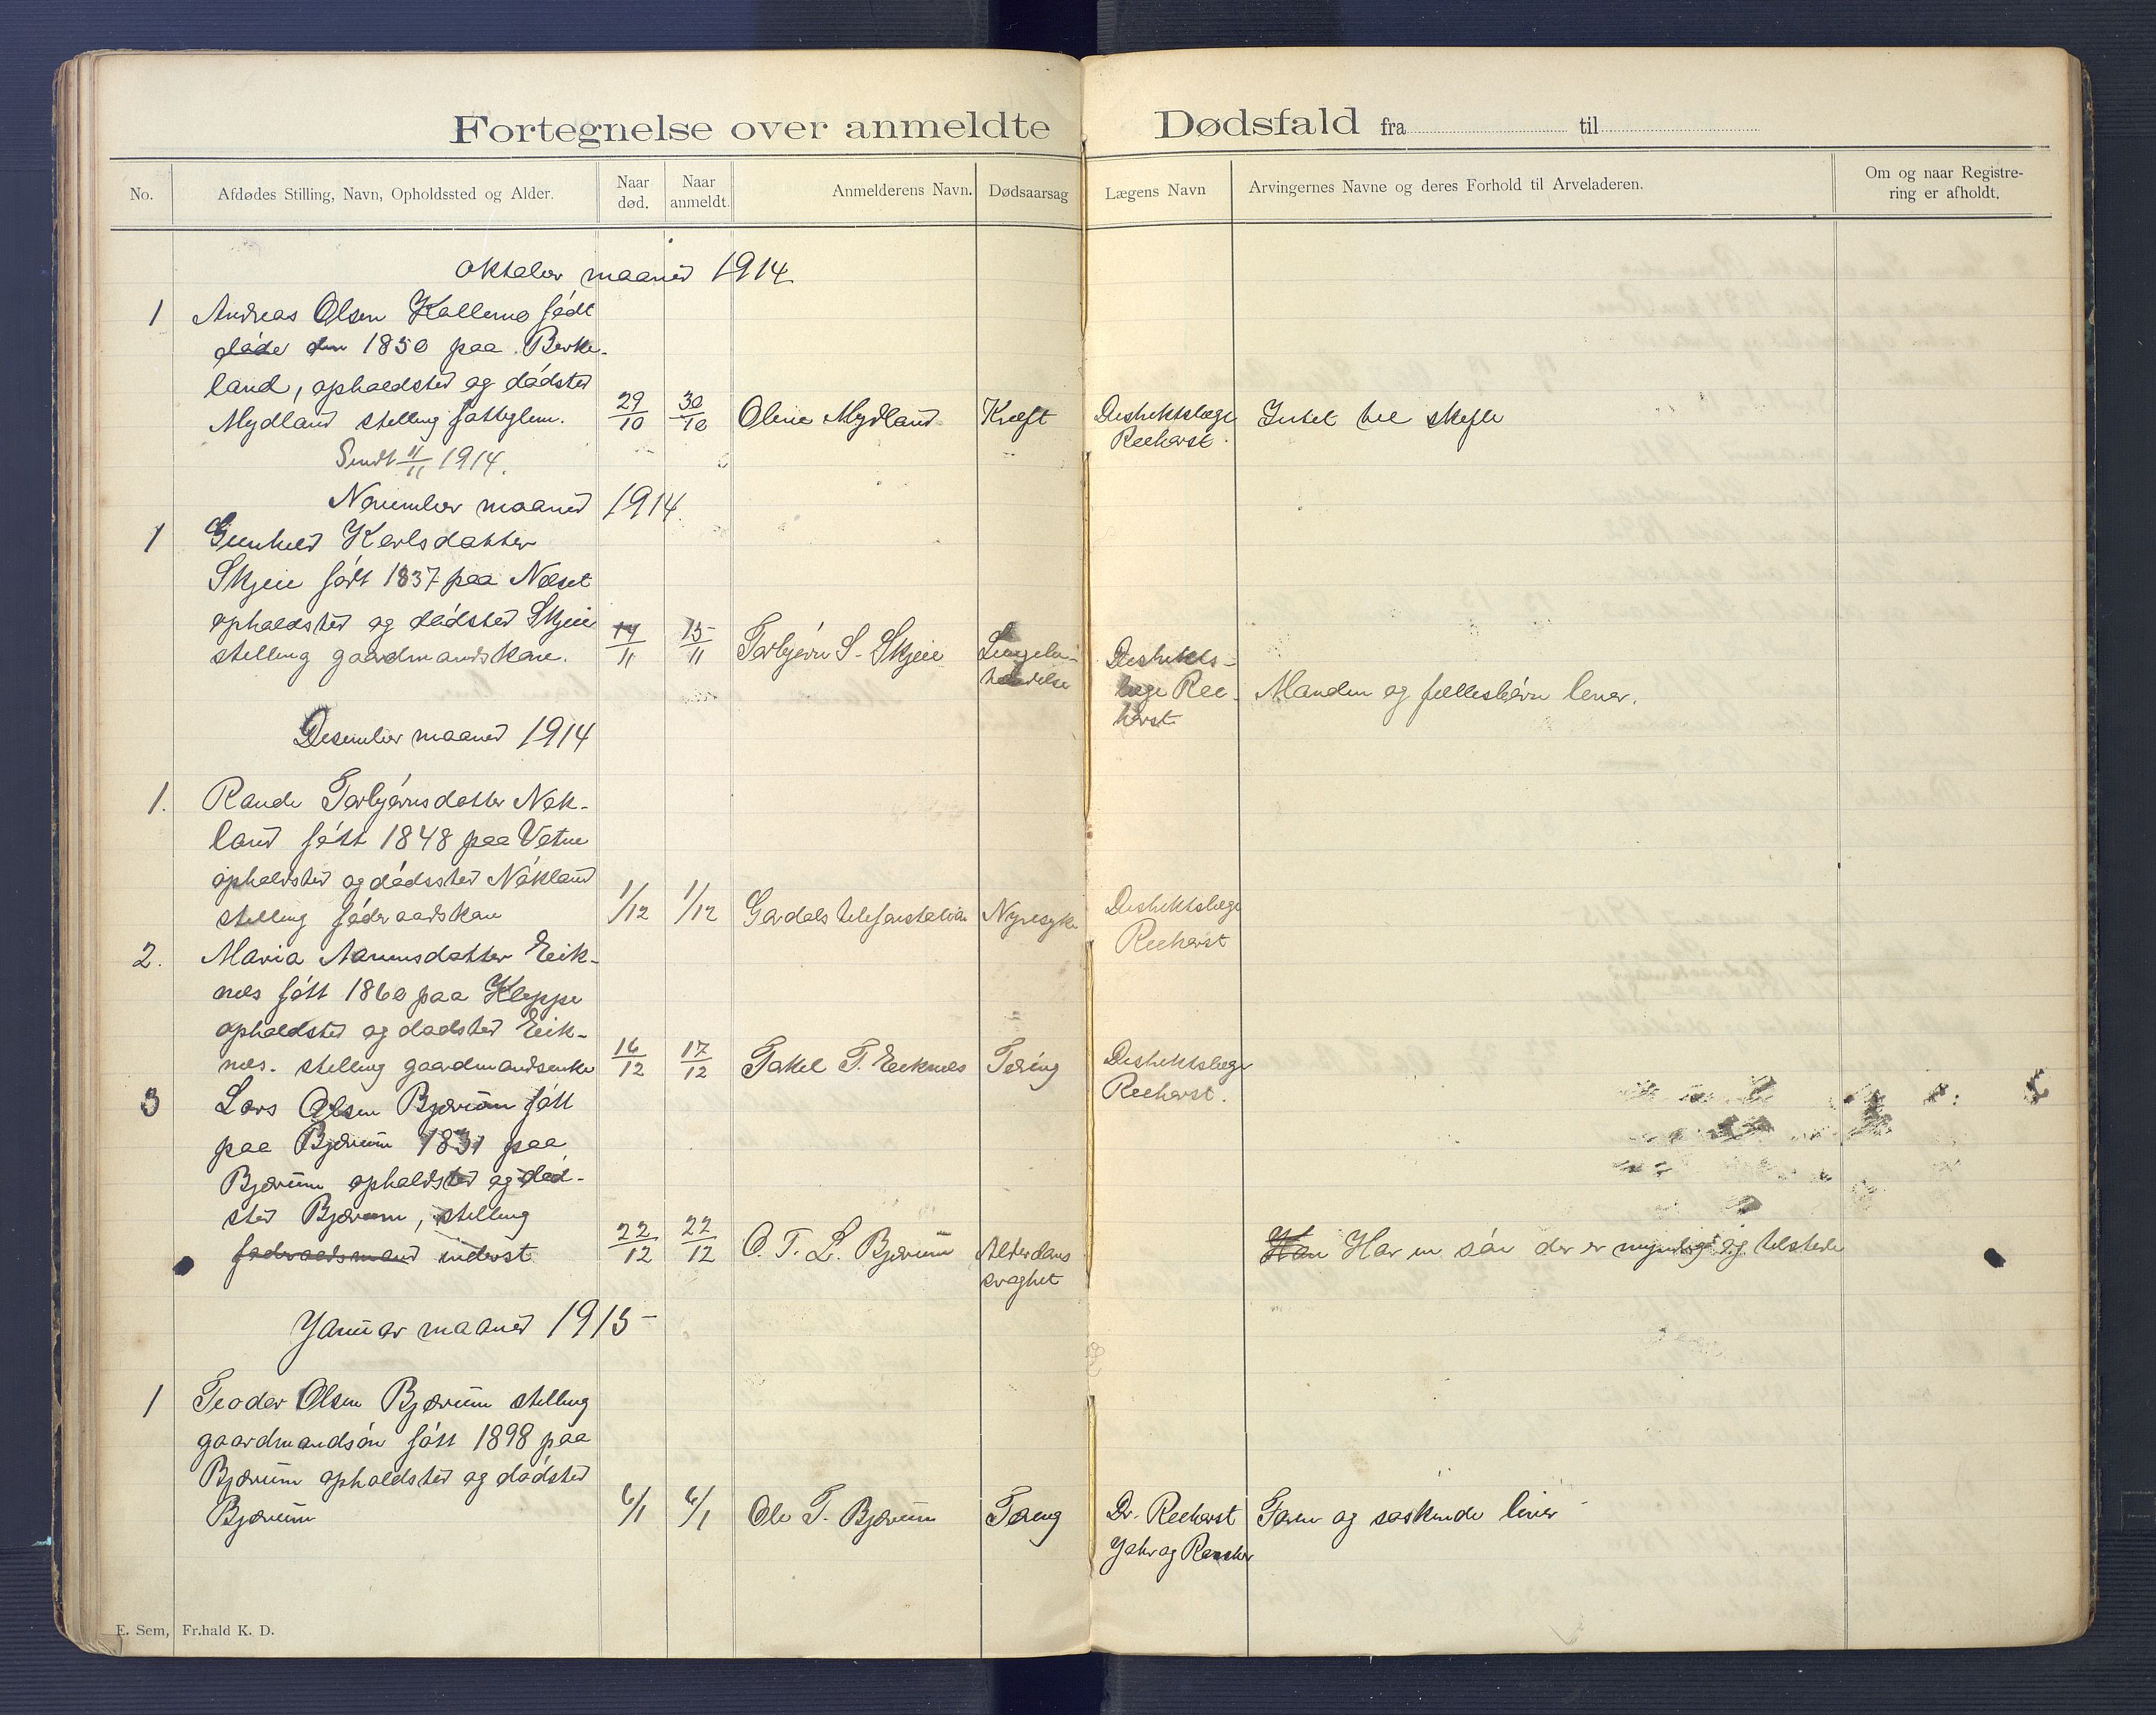 Fortegnelse over anmeldte Dødsfald fra til
No. Afdødes Stilling, Navn, Opholdssted og Alder. Naar død. Naar anmeldt. Anmelderens Navn. Dødsaarsag Lægens Navn Arvingernes Navne og deres Forhold til Arveladeren. Om og naar Registrering er afholdt.
oktober maaned 1914
1 Andreas Olsen født
1850 paa Berke-
land, opholdsted og dødsted
Mydland stilling fattiglem. 29/10 30/10 Oline Mydland Kræft Destriktslæge Intet til skifte
Reehorst.
Sendt 4/11 1914.
November maaned 1914.
1 Gunhild Karlsdatter
Skjeie født 1837 paa Næset
opholdsted og dødsted Skjeie
stilling gaardmandskone. 14/11 15/11 Torbjørn S. Skjeie Destrikts-
læge Ree- Manden og fællesbørn lever.
horst
Desember maaned 1914
1. Rande Torbjørnsdatter Nøk-
land født 1848 paa Vatne
opholdsted og dødssted Nökland
stilling föderaadskone 1/12 1/12 Gardals telefonstation Nyresyke Destriktslæge
Reehorst
2. Maria Aanensdatter Eik-
nes født 1860 paa Kleppe
opholdsted og dødsted Eik-
nes. stilling gaardmandsenke 16/12 17/12 Takel T. Eiknes Tæring Destriktslæge
Reehorst.
3 Lars Olsen Bjærum født
paa Bjærum 1831 paa
Bjærum opholdsted og død-
sted Bjærum, stilling
føderaadsmand inderst 22/12 22/12 O. T. L. Bjærum Alderdoms Han Har en søn der er myndig og tilstede
svaghet
Januar maaned 1915
1 Teodor Olsen Bjærum stilling
gaardmandsøn født 1898 paa
Bjærum opholdsted og dødsted
Bjærum 6/1 6/1 Ole T. Bjærum Tæring Dr. Reehorst Faren og søskende lever
og
E. Sem, Fr.hald K. D.